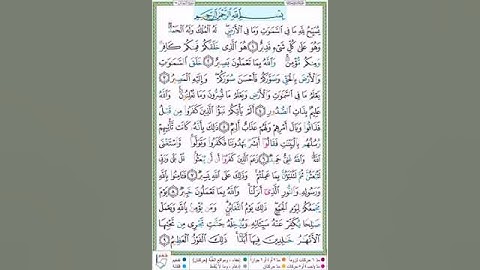 بِسْمِ اللَّهِ الرَّحْمَٰنِ الرَّحِيمِ
يُسَبِّحُ لِلَّهِ مَا فِي السَّمَٰوَٰتِ وَمَا فِي الْأَرْضِ لَهُ الْمُلْكُ وَلَهُ الْحَمْدُ
وَهُوَ عَلَىٰ كُلِّ شَيْءٍ قَدِيرٌ ١ هُوَ الَّذِي خَلَقَكُمْ فَمِنكُمْ كَافِرٌ
وَمِنكُم مُّؤْمِنٌ وَاللَّهُ بِمَا تَعْمَلُونَ بَصِيرٌ ٢ خَلَقَ السَّمَٰوَٰتِ
وَالْأَرْضَ بِالْحَقِّ وَصَوَّرَكُمْ فَأَحْسَنَ صُوَرَكُمْ وَإِلَيْهِ الْمَصِيرُ ٣
يَعْلَمُ مَا فِي السَّمَٰوَٰتِ وَالْأَرْضِ وَيَعْلَمُ مَا تُسِرُّونَ وَمَا تُعْلِنُونَ وَاللَّهُ
عَلِيمٌ بِذَاتِ الصُّدُورِ ٤ أَلَمْ يَأْتِكُمْ نَبَؤُا الَّذِينَ كَفَرُوا مِن قَبْلُ
فَذَاقُوا وَبَالَ أَمْرِهِمْ وَلَهُمْ عَذَابٌ أَلِيمٌ ٥ ذَٰلِكَ بِأَنَّهُ كَانَت تَّأْتِيهِمْ
رُسُلُهُم بِالْبَيِّنَٰتِ فَقَالُوا أَبَشَرٌ يَهْدُونَنَا فَكَفَرُوا وَتَوَلَّوا وَّاسْتَغْنَى
اللَّهُ وَاللَّهُ غَنِيٌّ حَمِيدٌ ٦ زَعَمَ الَّذِينَ كَفَرُوا أَن لَّن يُبْعَثُوا قُلْ بَلَىٰ وَرَبِّي
لَتُبْعَثُنَّ ثُمَّ لَتُنَبَّؤُنَّ بِمَا عَمِلْتُمْ وَذَٰلِكَ عَلَى اللَّهِ يَسِيرٌ ٧ فَـَٔامِنُوا بِاللَّهِ
وَرَسُولِهِ وَالنُّورِ الَّذِي أَنزَلْنَا وَاللَّهُ بِمَا تَعْمَلُونَ خَبِيرٌ ٨ يَوْمَ
يَجْمَعُكُمْ لِيَوْمِ الْجَمْعِ ذَٰلِكَ يَوْمُ التَّغَابُنِ وَمَن يُؤْمِن بِاللَّهِ وَيَعْمَلْ
صَٰلِحًا يُكَفِّرْ عَنْهُ سَيِّـَٔاتِهِ وَيُدْخِلْهُ جَنَّٰتٍ تَجْرِي مِن تَحْتِهَا
الْأَنْهَٰرُ خَٰلِدِينَ فِيهَا أَبَدًا ذَٰلِكَ الْفَوْزُ الْعَظِيمُ ٩